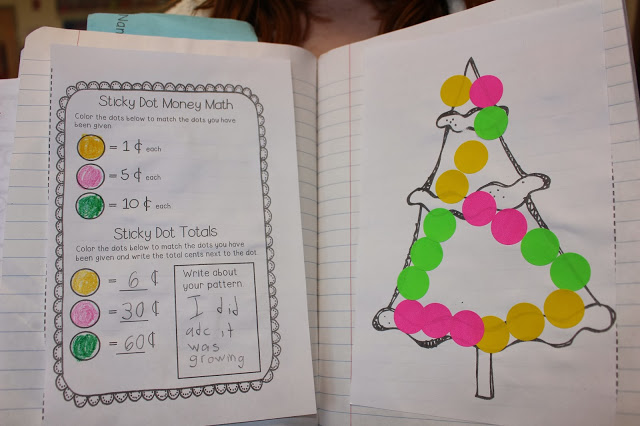 Nan
Sticky Dot Money Math
Color the dots below to match the dots you have
been given.
= 1¢ each
= 5¢ each
= 10¢ each
Sticky Dot Totals
Color the dots below to match the dots you have
been given and write the total cents next to the dot.
= 6 ¢
= 30 ¢
= 60 ¢
Write about
your pattern.
I did
adc it
was
growing